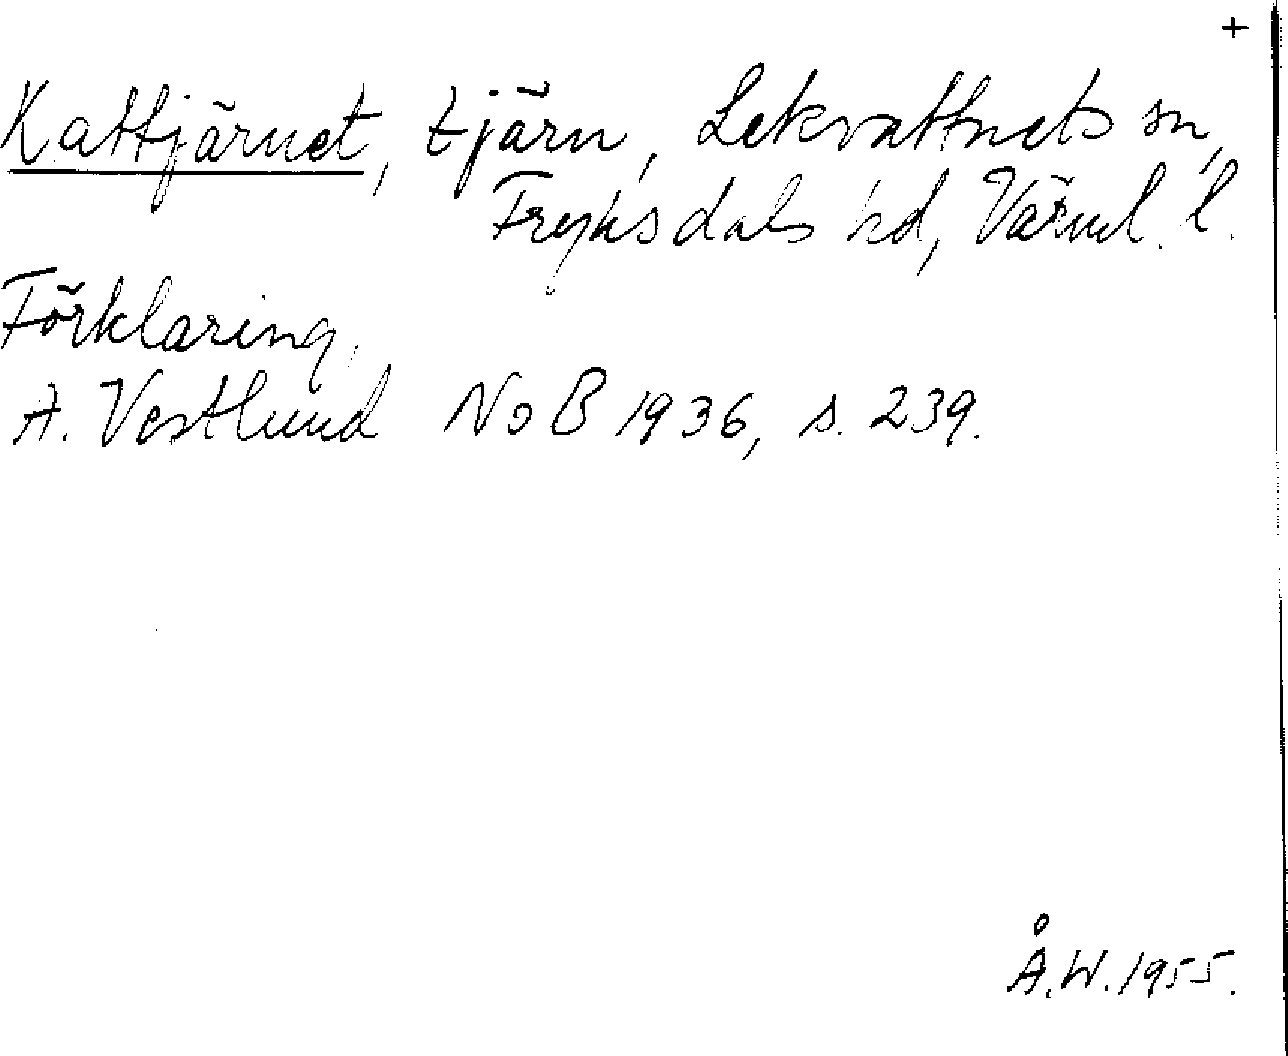 +
Kattjärnet, tjärn, Lekvattnets sn,
Fryksdals hd, Värml. l.
Förklaring.
A. Vestlund NoB 1936, s. 239.
Å.W. 1955.